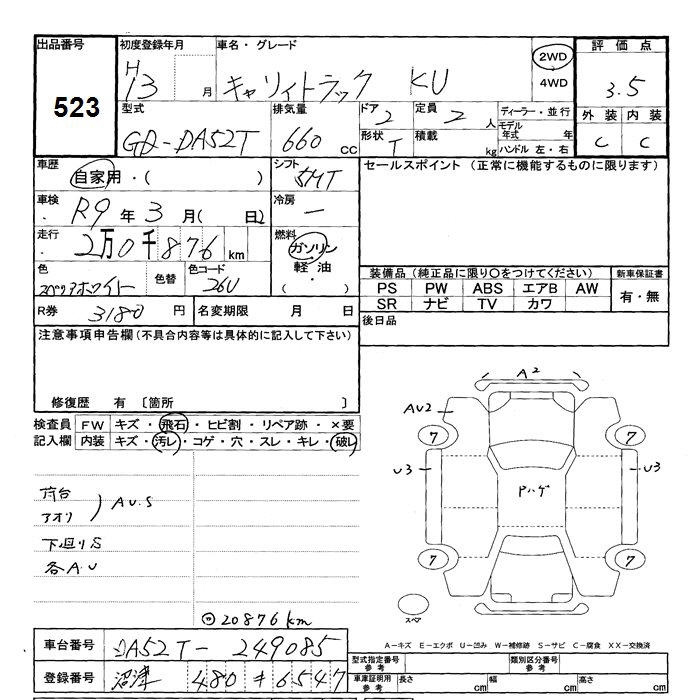 出品番号 初度登録年月 車名・グレード 評価点
523
H 13 月 キャリィトラック KU 2WD 4WD 3.5
型式 排気量 ドア 定員 ディーラー・並行 外装 内装
GD-DA52T 660 cc 2 2 人 モデル年式 年 C C
形状 T 積載 kg ハンドル 左・右
車歴 シフト セールスポイント (正常に機能するものに限ります)
自家用・( ) 5MT
車検 冷房
R9 年 3 月( 日) ー
走行 燃料
2万0千876 km ガソリン 軽油 ( ・ )
色 色替 色コード 装備品(純正品に限り○をつけてください) 新車保証書
スペリアホワイト 26U PS PW ABS エアB AW 有・無
SR ナビ TV カワ
R券 3180 円 名変期限 月 日 後日品
注意事項申告欄(不具合内容等は具体的に記入して下さい)
修復歴 有 〔箇所 〕
検査員 FW キズ・飛石・ヒビ割・リペア跡・×要
記入欄 内装 キズ・汚レ・コゲ・穴・スレ・キレ・破レ
荷台
アオリ ) AU.S
下廻りS
各A.U
20876km
A2
AU2
7 7
U3 U3
ヤハゲ
7 7
スペア
A-キズ E-エクボ U-凹み W-補修跡 S-サビ C-腐食 XX-交換済
車台番号 DA52T-249085 型式指定番号 参考 類別区分番号 参考
登録番号 沼津 480 キ 6547 車庫証明用 参考 長さ cm 幅 cm 高さ cm